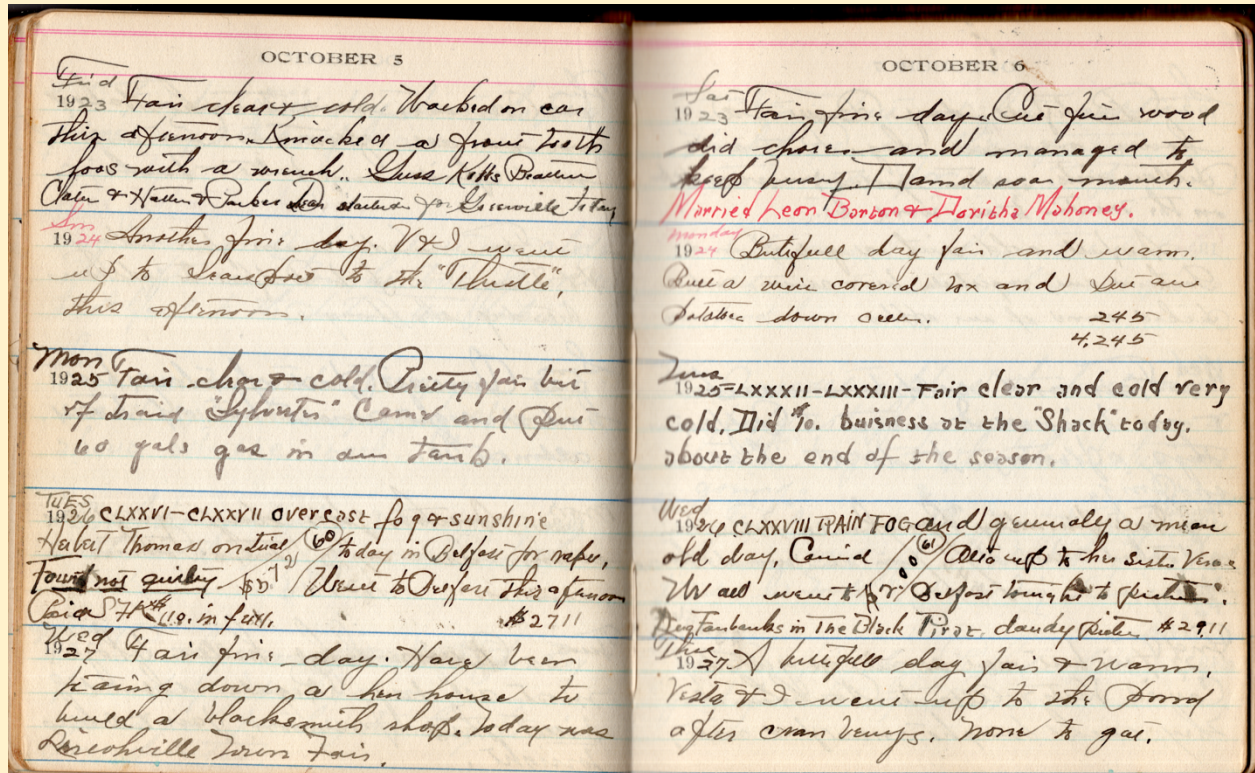 OCTOBER 5
Frid
1923 Fair clear & cold. Worked on car
this afternoon. Knocked a front tooth
loos with a wrench. Guss Kotts
& Parker started for today
Sun
1924 Another fine day. V & I went
up to to the "Thistle",
this afternoon.
Mon
1925 Fair clear & cold. Pretty fair bit
of traid "Sylvester" Came and put
60 gals gas in our tank.
TUES
1926 CLXXVI-CLXXVII overcast fog & sunshine
Herbert Thomas on trial 60 today in Belfast for
Found not guilty Went to Belfast this afternoon
Paid in full. $2711
Wed
1927 Fair fine day. Have been
tearing down a hen house to
build a blacksmith shop. Today was
Lincolnville Town Fair.
OCTOBER 6
Sat
1923 Fair fine day. Cut fire wood
did chores and managed to
keep busy. D soar mouth.
Married Leon Barton & Doritha Mahoney.
monday
1924 Butifull day fair and warm.
Built a wire covered box and put our
potatoes down celler. 245
4,245
Tues
1925=LXXXII-LXXXIII-Fair clear and cold very
cold. Did buisness at the "Shack" today.
about the end of the season.
Wed
1926 CLXXVIII RAIN FOG and generally a mean
old day. 61 up to her sist.
We all went to Belfast tonight to
Fairbanks in The Black Pirat. dandy $2911
Thur
1927. A butifull day fair & warm.
Vesta & I went up to the pond
after cranberrys. None to get.